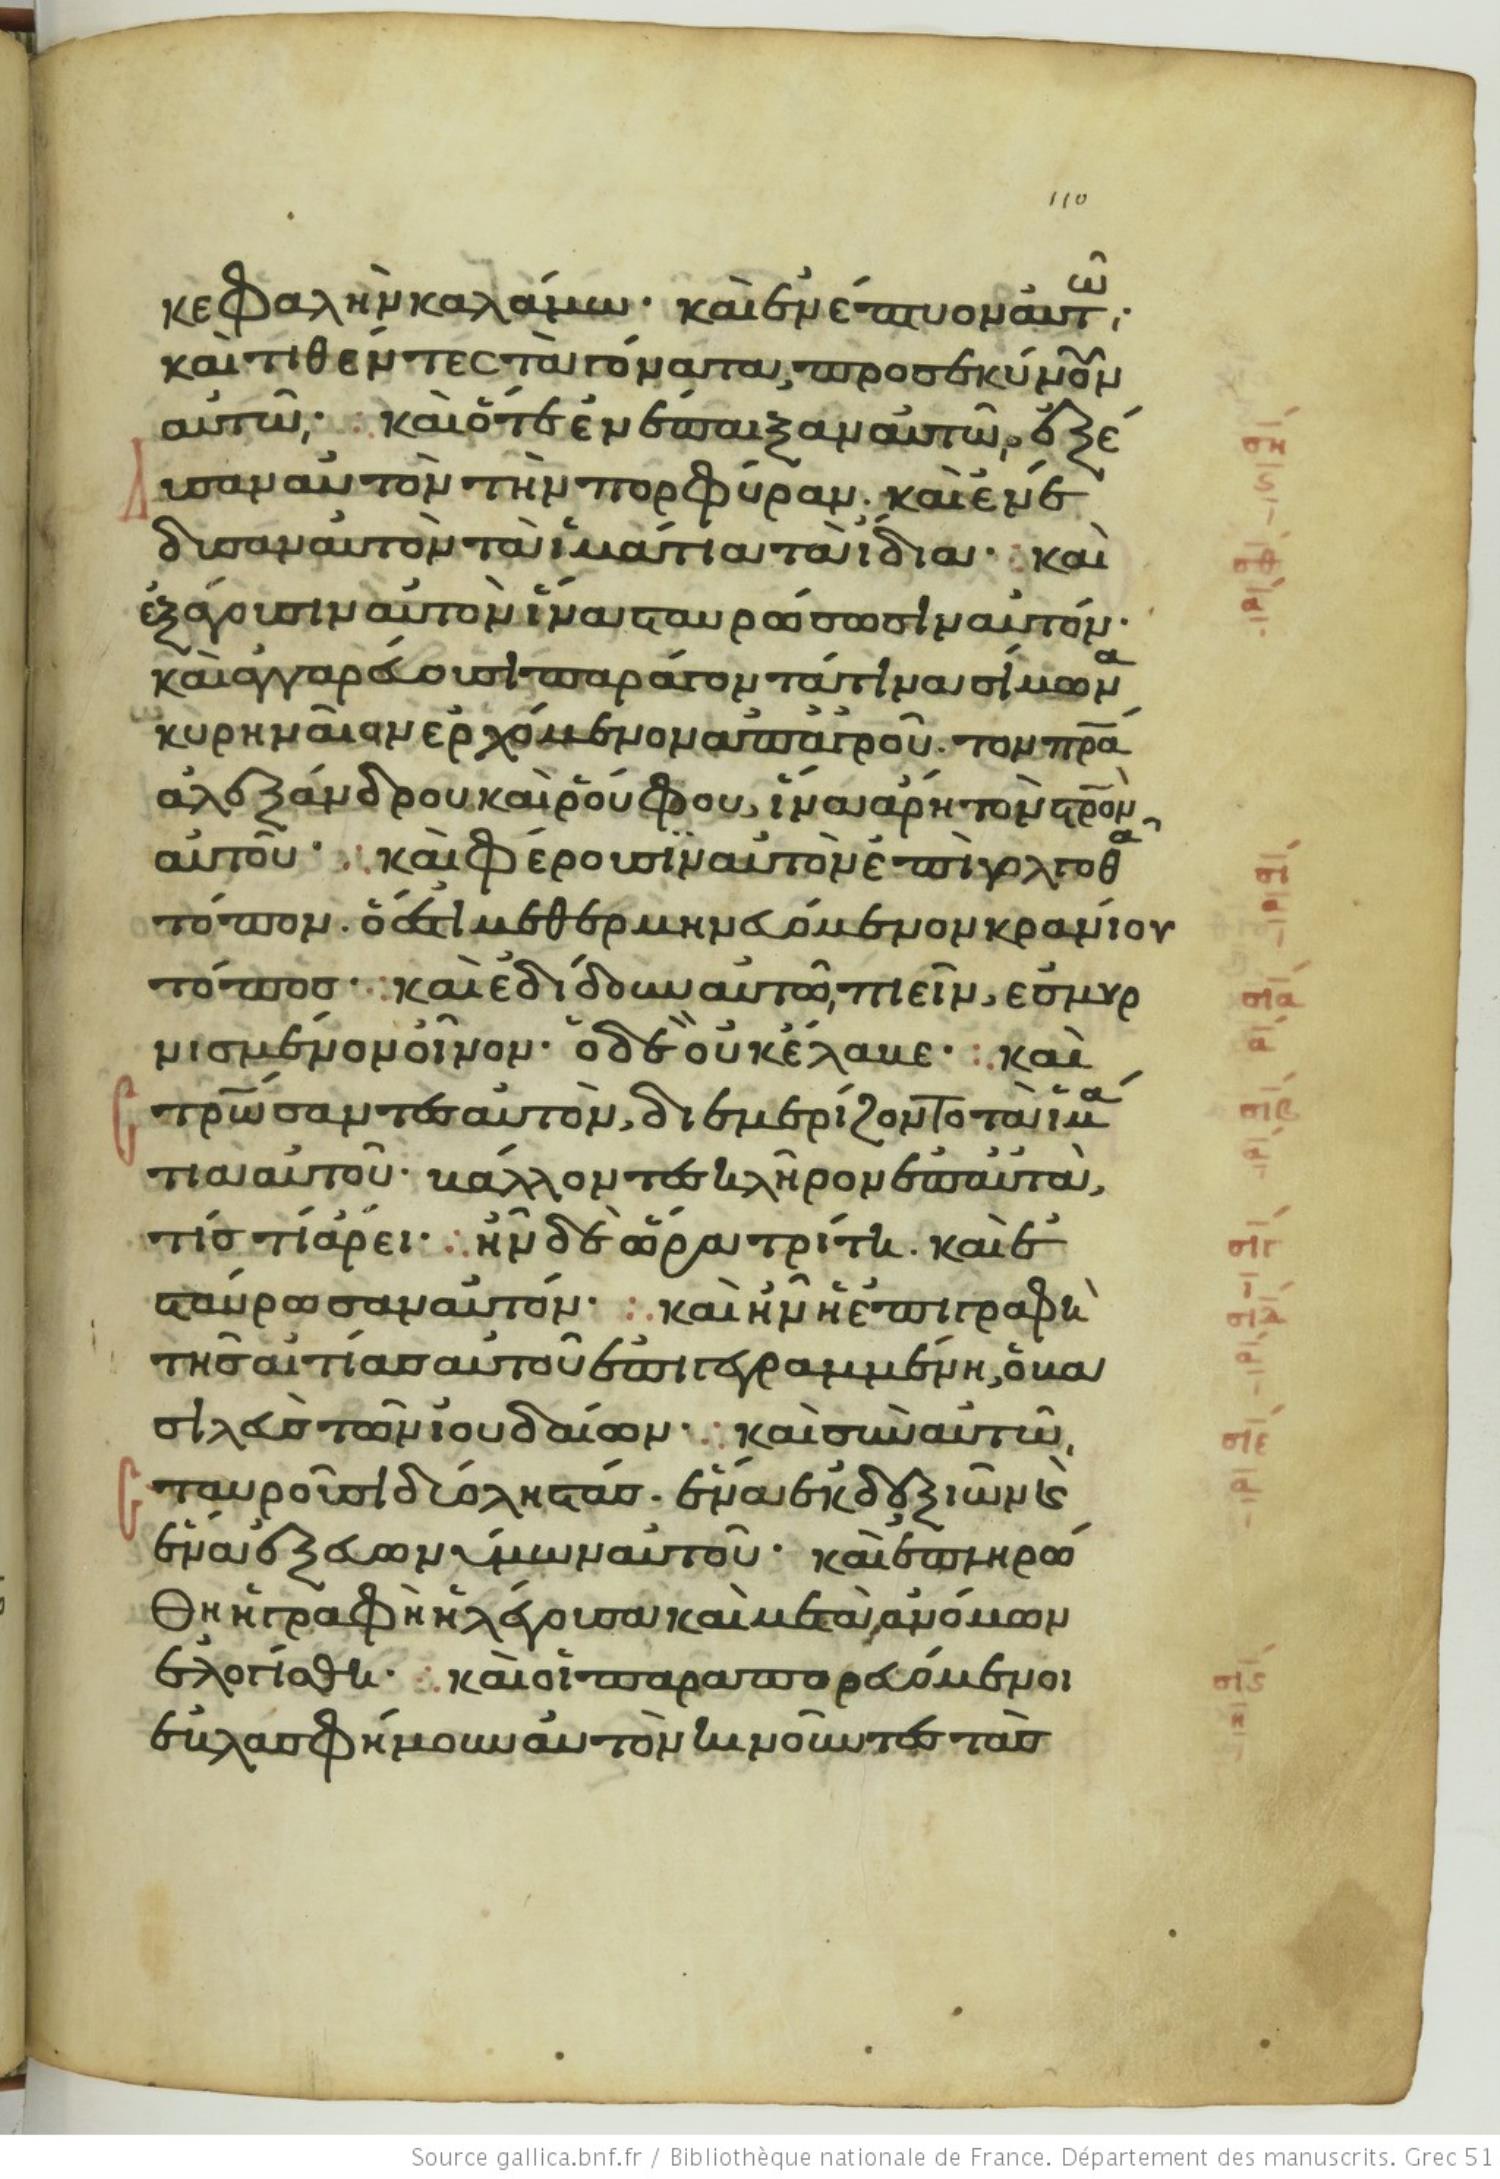 110
κεφαλὴν καλάμω· καὶ ἐνέπτυον αυτῶ·
καὶ τιθέντες τὰ γόνατα, προσεκύνουν
αὐτῶ· καὶ ὅτε ἐνέπαιξαν αὐτῶ, ἐξέ
δυσαν αυτὸν τὴν πορφύραν. καὶ ἐνέ
δυσαν αυτὸν τὰ ἱμάτια τὰ ἴδια· καὶ
ἐξάγουσιν αὐτὸν ἵνα σταυρώσωσιν αὐτόν·
καὶ ἀγγαρεύουσι παράγοντά τινα σίμωνα
κυρηναῖον ἐρχόμενον ἀπ' ἀγροῦ. τον πρα
ἀλεξάνδρου καὶ ῥούφου, ἵνα ἄρη τὸν στρον
αὐτοῦ· καὶ φέρουσϊν αυτὸν ἐπὶ γολγοθα
τόπον. ὅ ἐστι μεθερμηνευόμενον κρανίου
τόπος· καὶ ἐδίδουν αυτῶ πιεῖν, ἐσμυρ
νισμένον οἶνον· ὁ δὲ οὐκ ἔλαβε· καὶ
στρωσαντες αυτὸν, διεμερίζοντο τὰ ἱμά
τια αὐτοῦ· βάλλοντες κλῆρον ἐπ' αὐτὰ,
τίς τί ἄρει· ἦν δὲ ὥρα τρίτη. καὶ ἐ
σταύρωσαν αυτόν· καὶ ἦν ἡ ἐπιγραφὴ
τῆς αἰτίας αυτοῦ ἐπιγεγραμμένη, ὁ βα
σιλεὺς τῶν ἰουδαίων· καὶ σὺν αὐτῶ,
σταυροῦσι δύο ληστάς. ἕνα ἐκ δεξιῶν κὲ
ἕνα ἐξ εὐωνύμων αυτοῦ· καὶ ἐπληρώ
θη ἡ γραφὴ ἡ λέγουσα καὶ μετὰ ἀνόμων
ἐλογίσθη· καὶ οἱ παραπορευόμενοι
ἐβλασφήμουν αυτὸν κινοῦντες τὰς
Source gallica.bnf.fr / Bibliothèque nationale de France. Département des manuscrits. Grec 51